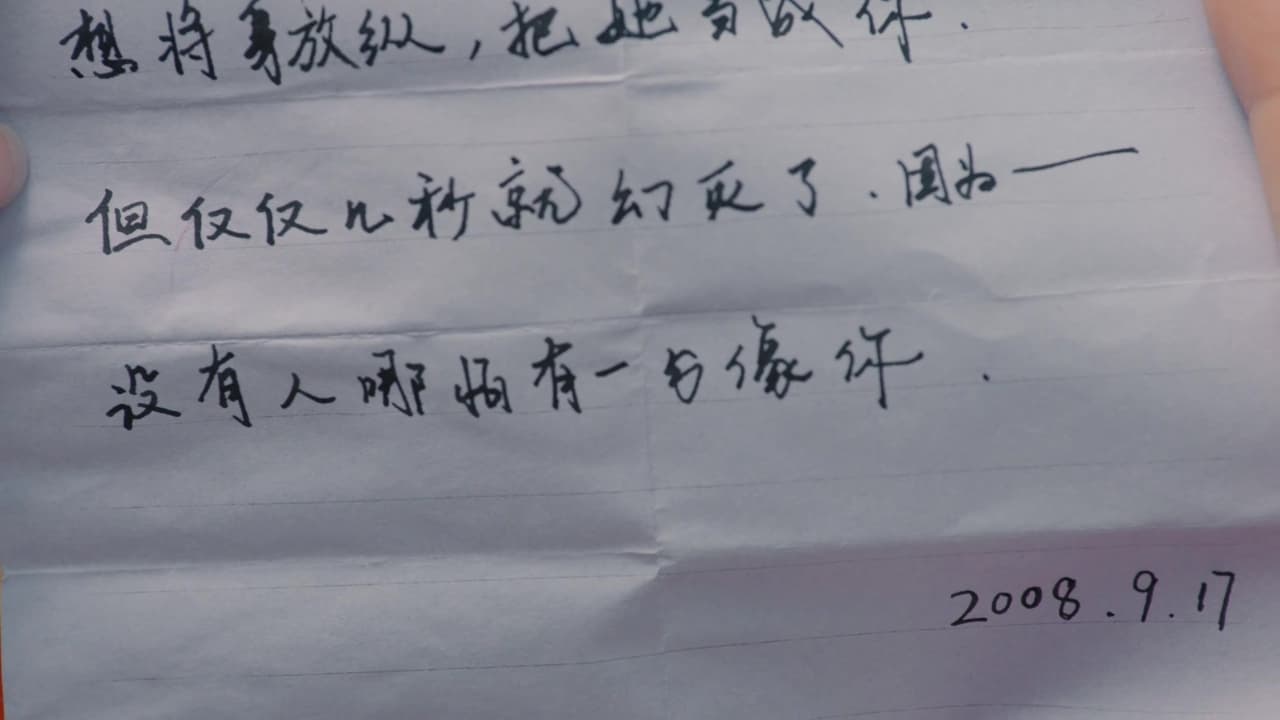 想将身放纵，把她当成你.
但仅仅几秒就幻灭了.因为——
没有人哪怕有一点像你.
2008.9.17